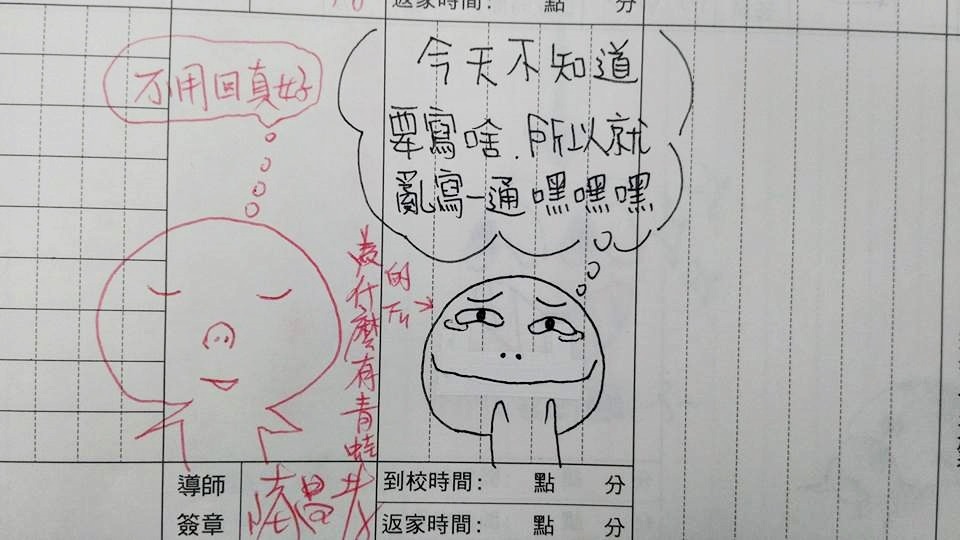 返家時間: 點 分
不用回真好
今天不知道
要寫啥.所以就
亂寫一通嘿嘿嘿
為什麼有青蛙
的
Fu
導師
簽章
到校時間: 點 分
返家時間: 點 分